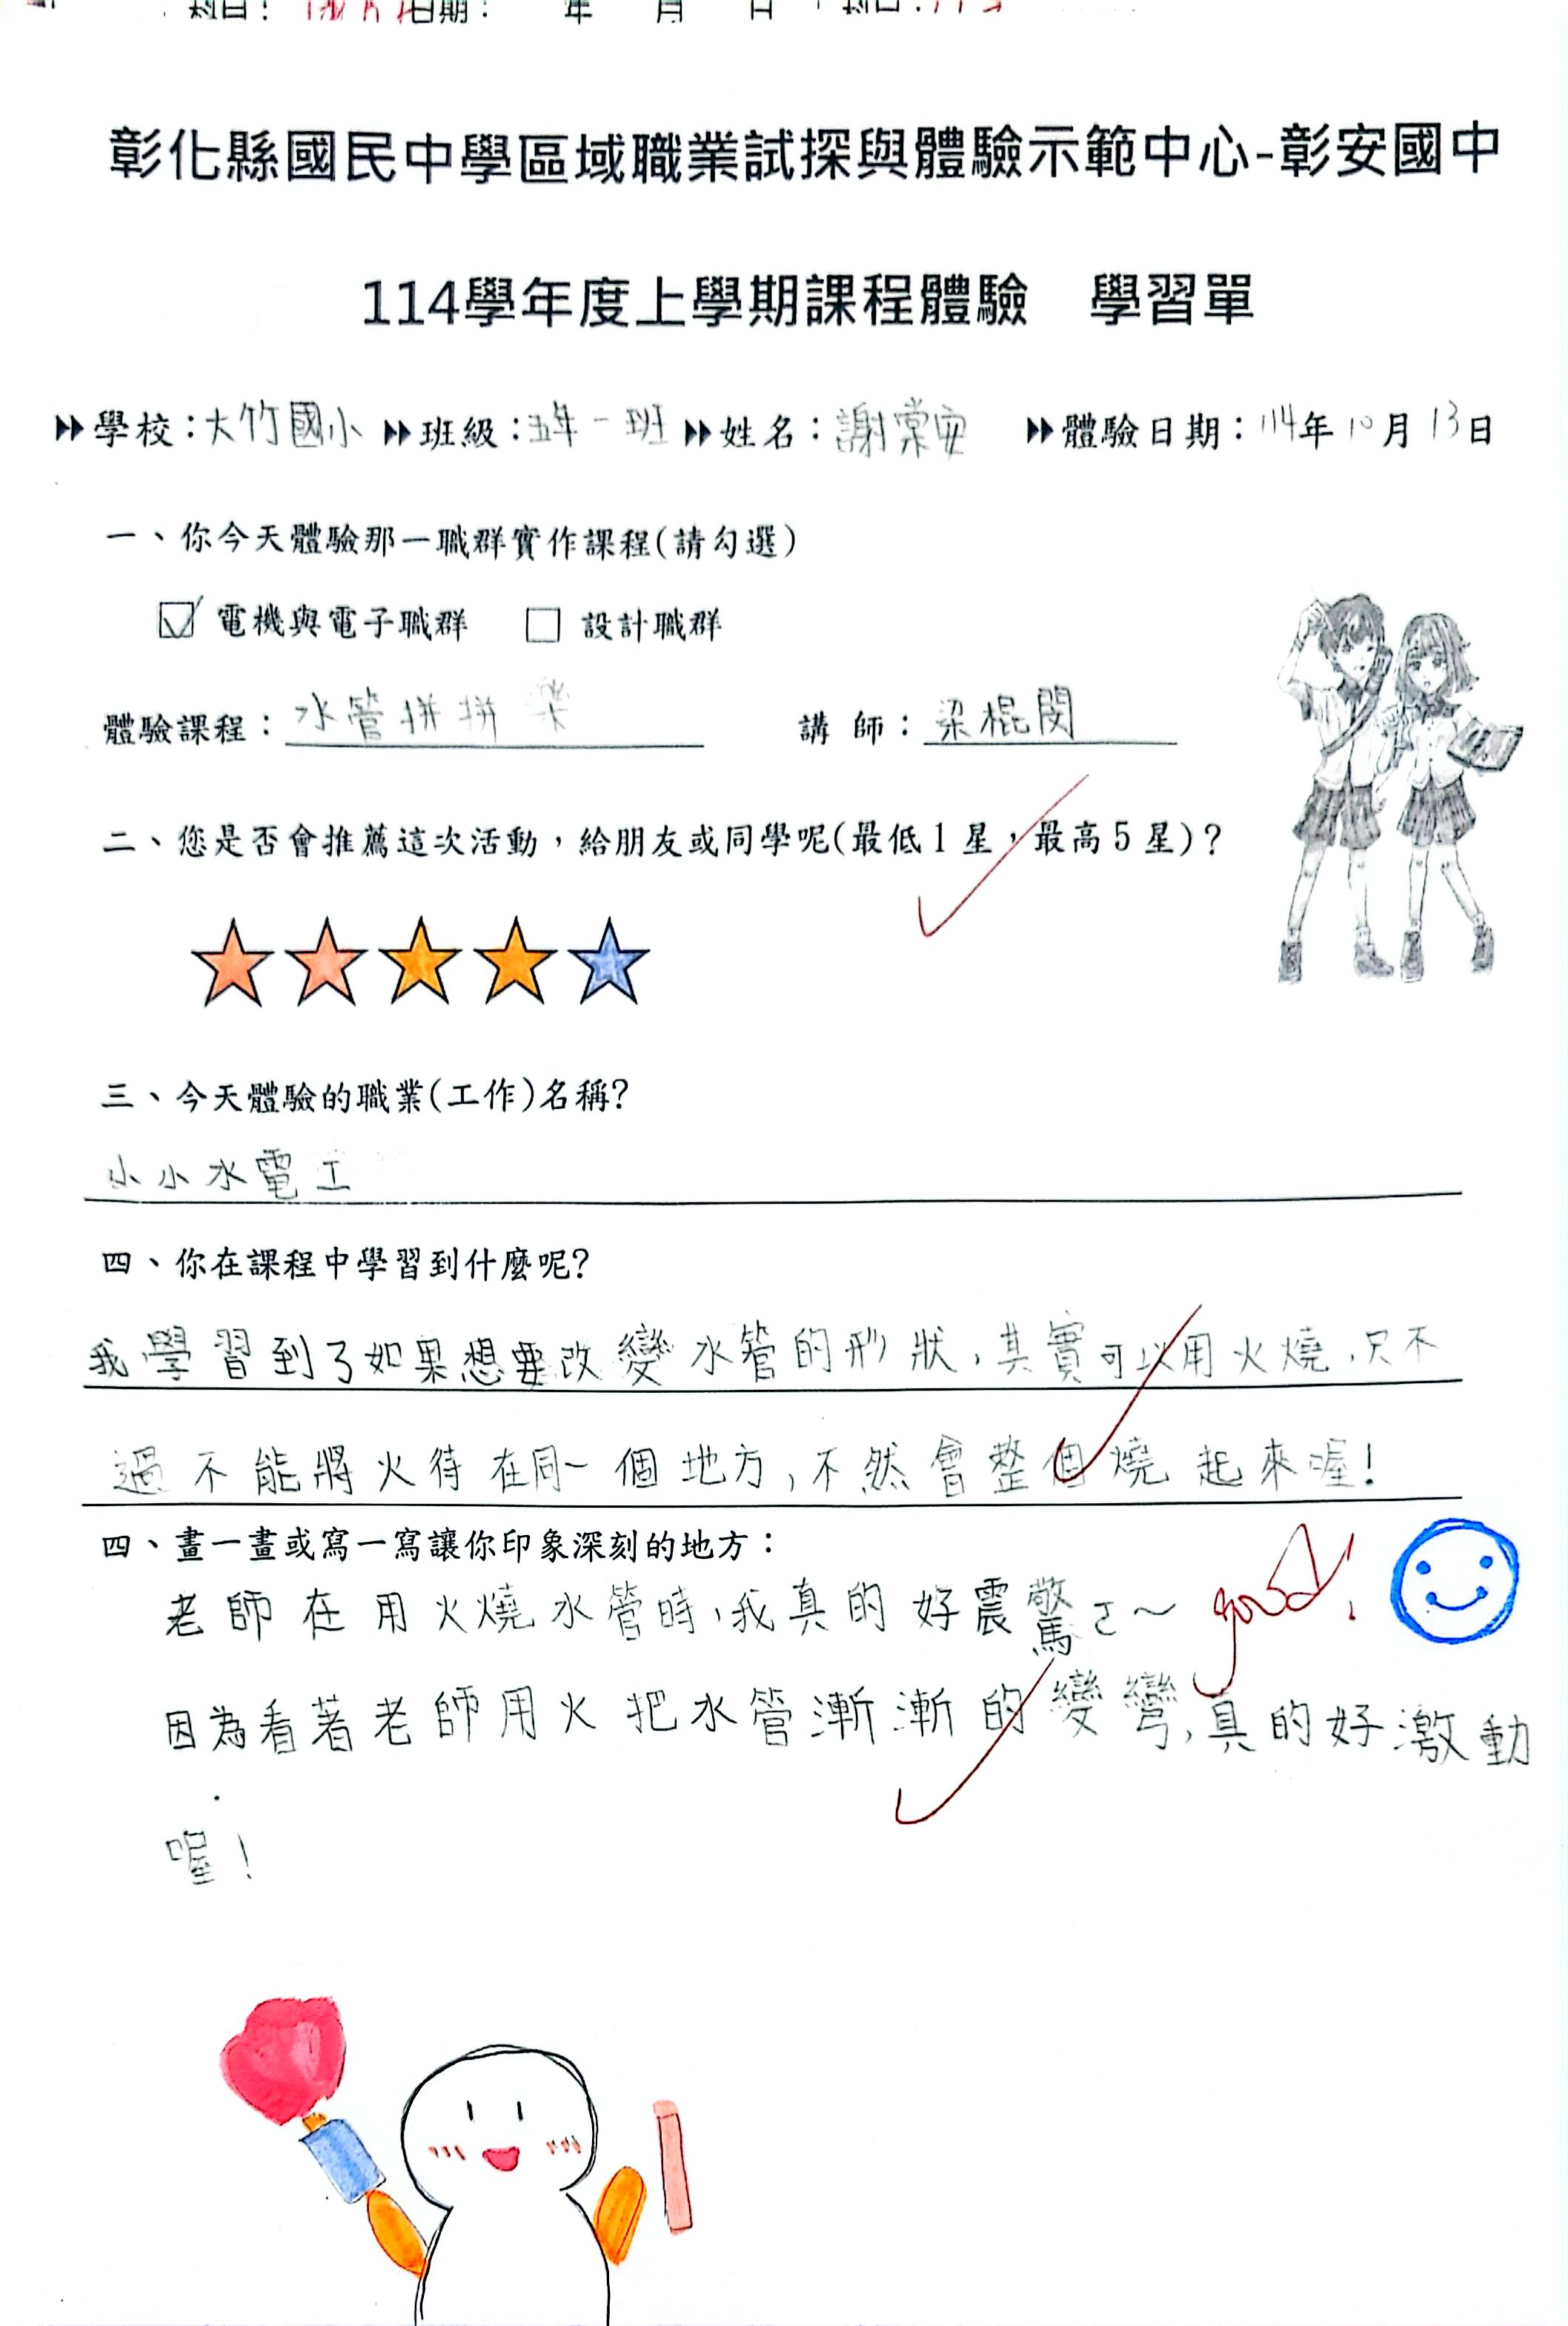 彰化縣國民中學區域職業試探與體驗示範中心-彰安國中
114學年度上學期課程體驗 學習單
學校:大竹國小 班級:五年一班 姓名:謝棠安 體驗日期:114年10月13日
一、你今天體驗那一職群實作課程(請勾選)
☑ 電機與電子職群 □ 設計職群
體驗課程:水管拼拼樂 講 師:梁棍閔
二、您是否會推薦這次活動,給朋友或同學呢(最低1星,最高5星)?
三、今天體驗的職業(工作)名稱?
小小水電工
四、你在課程中學習到什麼呢?
我學習到了如果想要改變水管的形狀,其實可以用火燒,只不
過不能將火待在同一個地方,不然會整個燒起來喔!
四、畫一畫或寫一寫讓你印象深刻的地方:
老師在用火燒水管時,我真的好震驚ㄛ~ good!
因為看著老師用火把水管漸漸的變彎,真的好激動
喔!